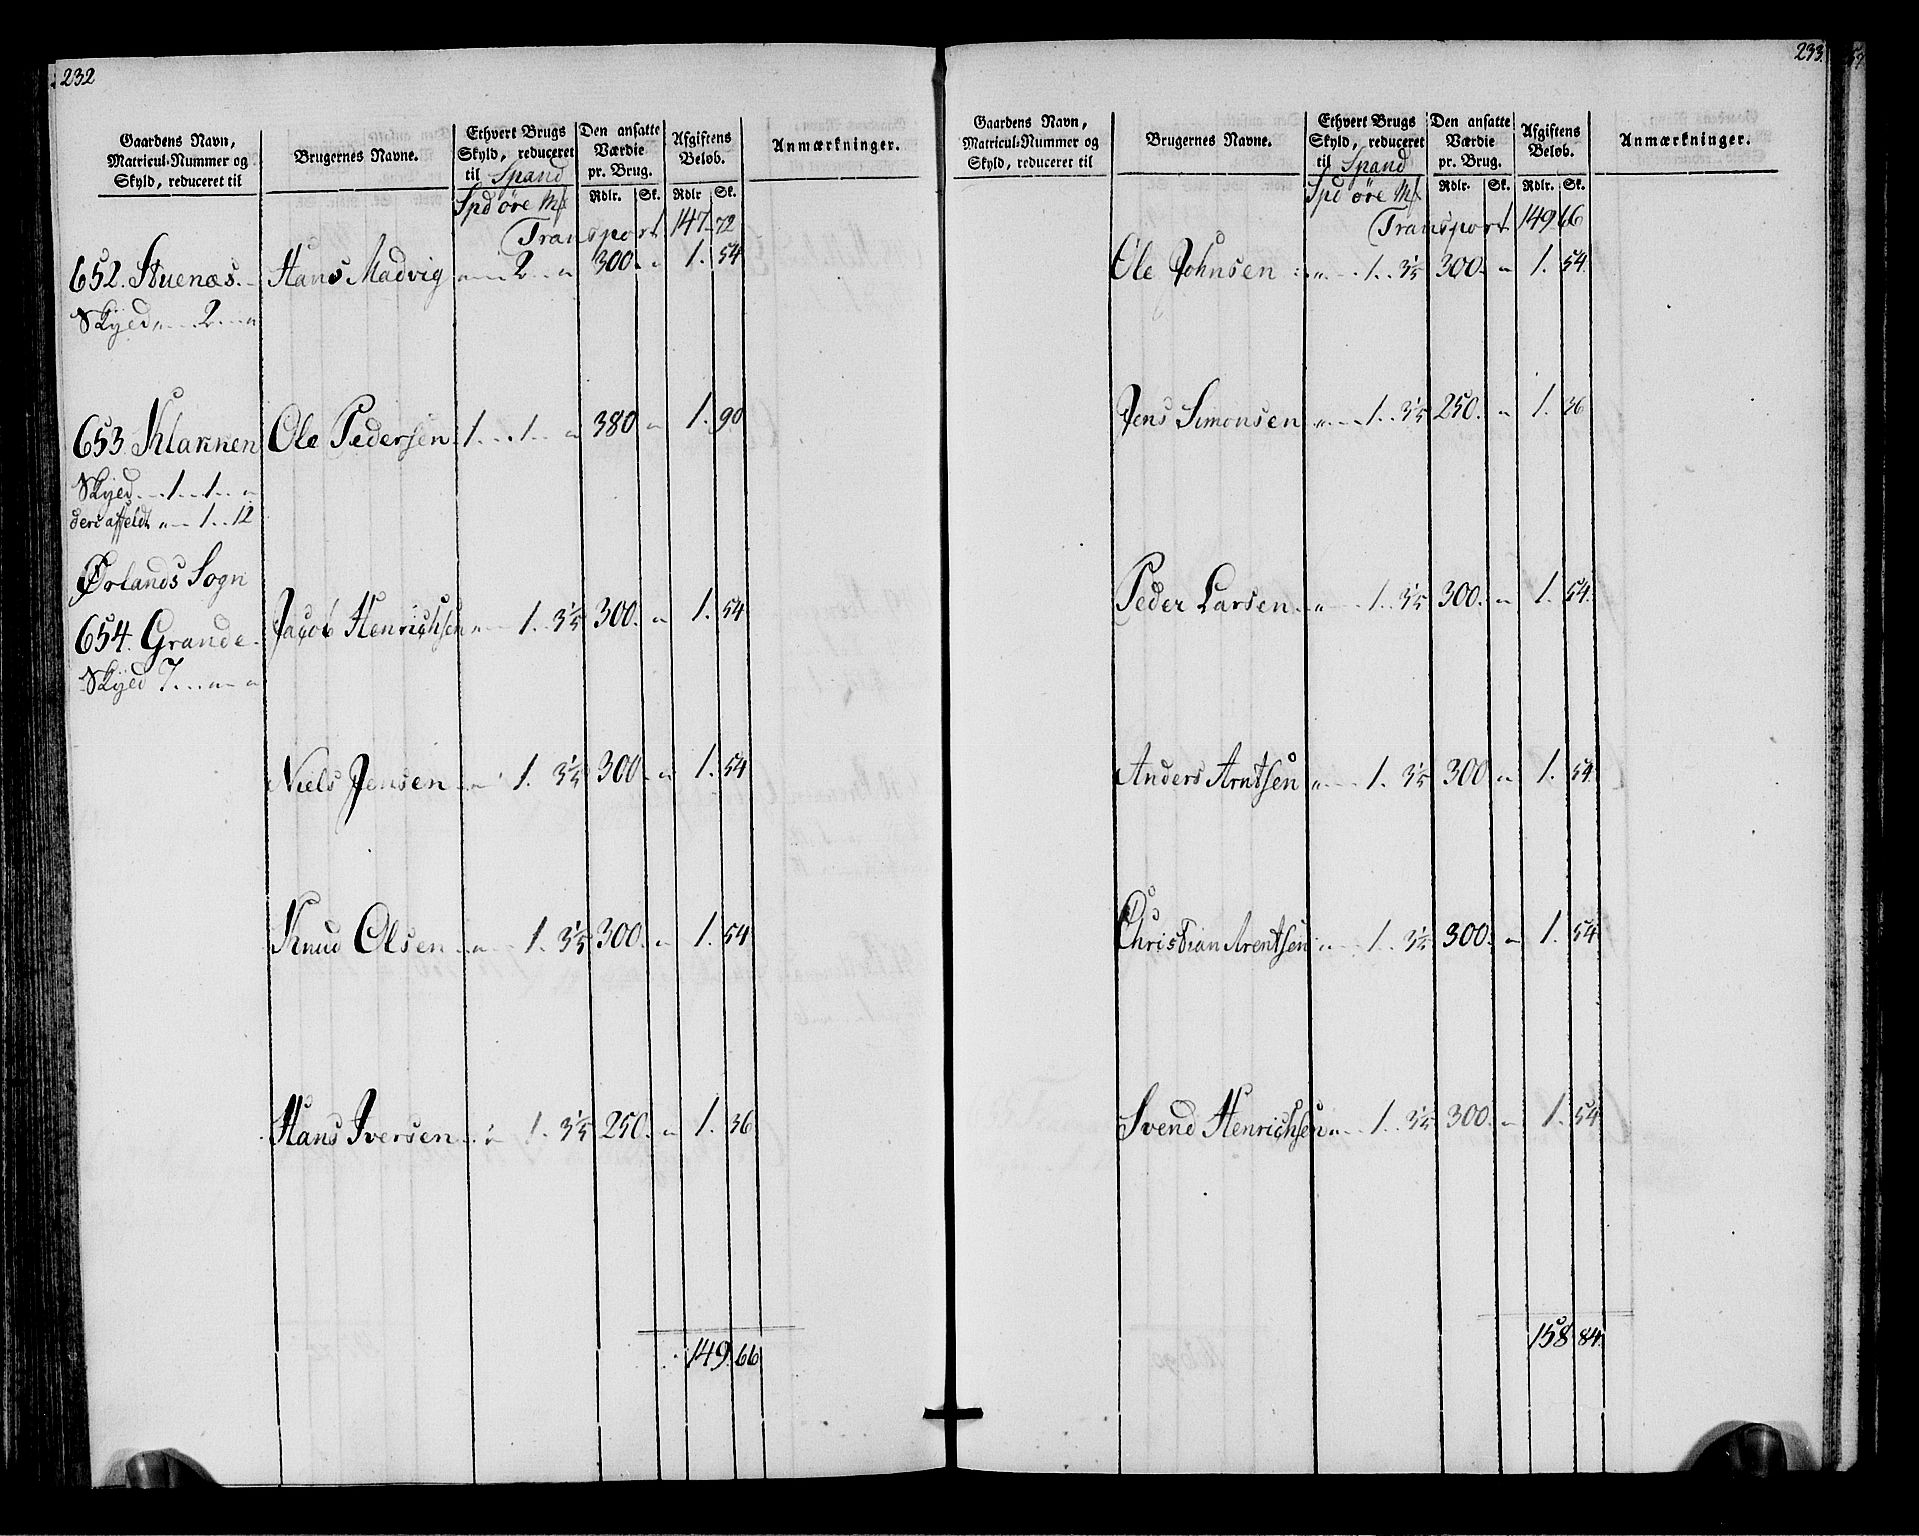 232
Gaardens Navn,
Matricul-Nummer og
Skyld, reduceret til
Brugernes Navne.
Ethvert Brugs
Skyld, reduceret
til Spand
Spd öre Mk
Den ansatte
Værdie
pr. Brug.
Rdlr. Sk.
Afgiftens
Beløb.
Rdlr Sk.
Anmærkninger.
Transport 147. 72
652. Stuenæs. Hans Madvig „ 2 „ 300. „ 1. 54
Skyld „ 2 „
653 Klakken Ole Pedersen 1 . 1 „ 380 „ 1. 90
Skyld 1 . 1 „
deraf feldt „ 1 . 12
Ørlands Sogn
654. Grande Jacob Henrichsen „ 1. 3 1/5 300. „ 1. 54
Skyld 7 „ „
Niels Jensen „ 1. 3 1/5 300. „ 1. 54
Knud Olsen „ 1. 3 1/5 300. „ 1. 54
Hans Iversen „ 1. 3 1/5 250. „ 1. 36
149. 66
233.
Gaardens Navn,
Matricul-Nummer og
Skyld, reduceret til
Brugernes Navne.
Ethvert Brugs
Skyld, reduceret
til Spand
Spd öre Mk
Den ansatte
Værdie
pr. Brug.
Rdlr. Sk.
Afgiftens
Beløb.
Rdlr. Sk.
Anmærkninger.
Transport 149 66
Ole Johnsen „ 1. 3 1/5 300. „ 1. 54.
Jens Simonsen „ 1. 3 1/5 250. „ 1. 36
Peder Larsen „ 1. 3 1/5 300. „ 1. 54.
Anders Arntsen „ 1. 3 1/5 300 „ 1. 54.
Christian Arentsen „ 1. 3 1/5 300. „ 1. 54
Svend Henrichsen „ 1. 3 1/5 300. „ 1. 54
158 84.